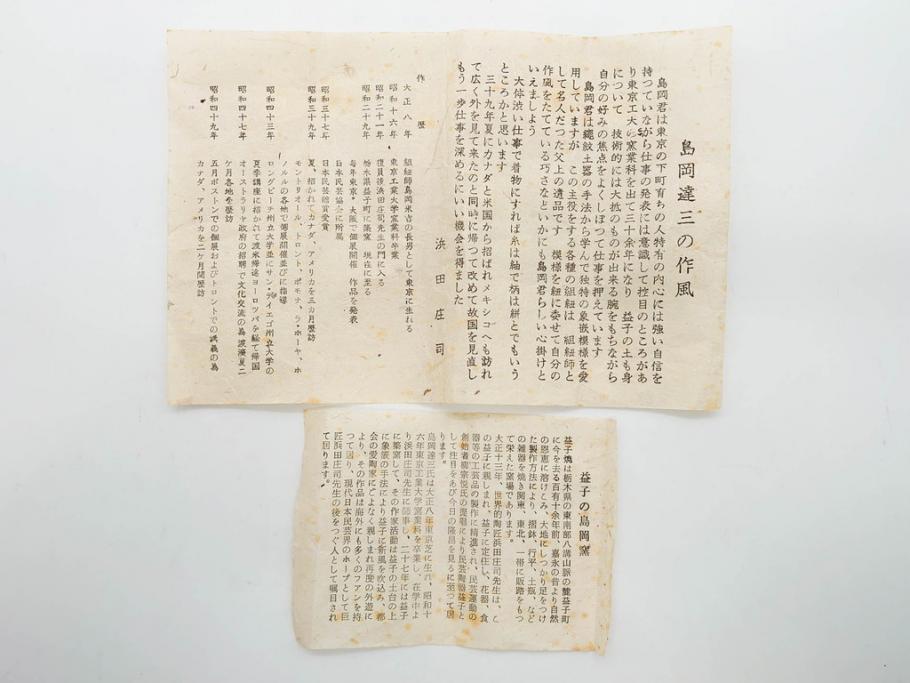 島岡達三の作風
島岡君は東京の下町育ちの人特有の内心には強い自信を
持つていながら仕事の発表には意識して控目のところがあ
り東京工大の窯業科を出て三十余年になり 益子の土も身
について 技術的には大抵のものが出来る腕をもちながら
自分の好みの焦点をよくしぼつて仕事を押えています
島岡君は縄紋土器の手法から学んで独特の象嵌模様を愛
用していますが この主役をする各種の組紐は 組紐師と
して名人だつた父上の遺品です 模様を紐に委せて自分の
作風をたてている巧さなどいかにも島岡君らしい心掛けと
いえましよう
大体渋い仕事で着物にすれば糸は紬で柄は絣とでもいう
ところかと思います
三十九年夏にカナダと米国から招ばれメキシコへも訪れ
て広く外を見て来たのと同時に帰つて改めて故国を見直し
もう一歩仕事を深めるにいい機会を得ました
浜田庄司
作歴
大正八年 組紐師島岡米吉の長男として東京に生れる
昭和十六年 東京工業大学窯業科卒業
昭和二十一年 復員後浜田庄司先生の門に入る
栃木県益子町に築窯 現在に至る
昭和二十九年 毎年東京、大阪で個展開催 作品を発表
日本民芸協会に所属
昭和三十七年 日本民芸館賞受賞
昭和三十九年 夏、招かれてカナダ、アメリカを三カ月歴訪
モントリオール、トロント、ポモナ、ラ・ホーヤ、ホ
ノルルの各地で個展開催並びに指導
昭和四十三年 ロングビーチ州立大学並にサン・デイエゴ州立大学の
夏季講座に招かれて渡米帰途ヨーロツパを経て帰国
昭和四十七年 オーストラリヤ政府の招聘で文化交流の為 渡濠夏二
ケ月各地を歴訪
昭和四十九年 五月ボストンでの個展およびトロントでの講義の為
カナダ、アメリカを二ケ月間歴訪
益子の島岡窯
益子焼は栃木県の東南部八溝山脈の麓益子町
に今を去る百有十余年前、嘉永の昔より自然
の恩恵に溶けこみ、大地にしつかり足をつけ
た製作方法により、摺鉢、行平、土瓶、など
の雑器を焼き関東、東北、一帯に販路をもつ
て栄えた窯場であります。
大正十三年、世界的陶匠浜田庄司先生は、こ
の益子に親しまれ。益子に定住し、花器、食
器等の工芸品の製作に精進され、民芸運動の
創始者柳宗悦氏の提唱により民芸陶器益子と
して注目をあび今日の隆昌を見るに至つて居
ります。
島岡達三氏は大正八年東京芝に生れ、昭和十
六年東京工業大学窯業科を卒業し、在学中よ
り浜田庄司先生に師事し、二十七年には益子
に築窯して、その作家活動は益子の土台の上
に象嵌の手法により益子に新風を吹込み、都
会の愛陶家にこよなく親しまれ再度の外遊に
より、その作品は海外にも多くのファンを持
つて居り、現代日本民芸界のホープとして巨
匠浜田庄司先生の後をつぐ人として嘱目され
て居ります。